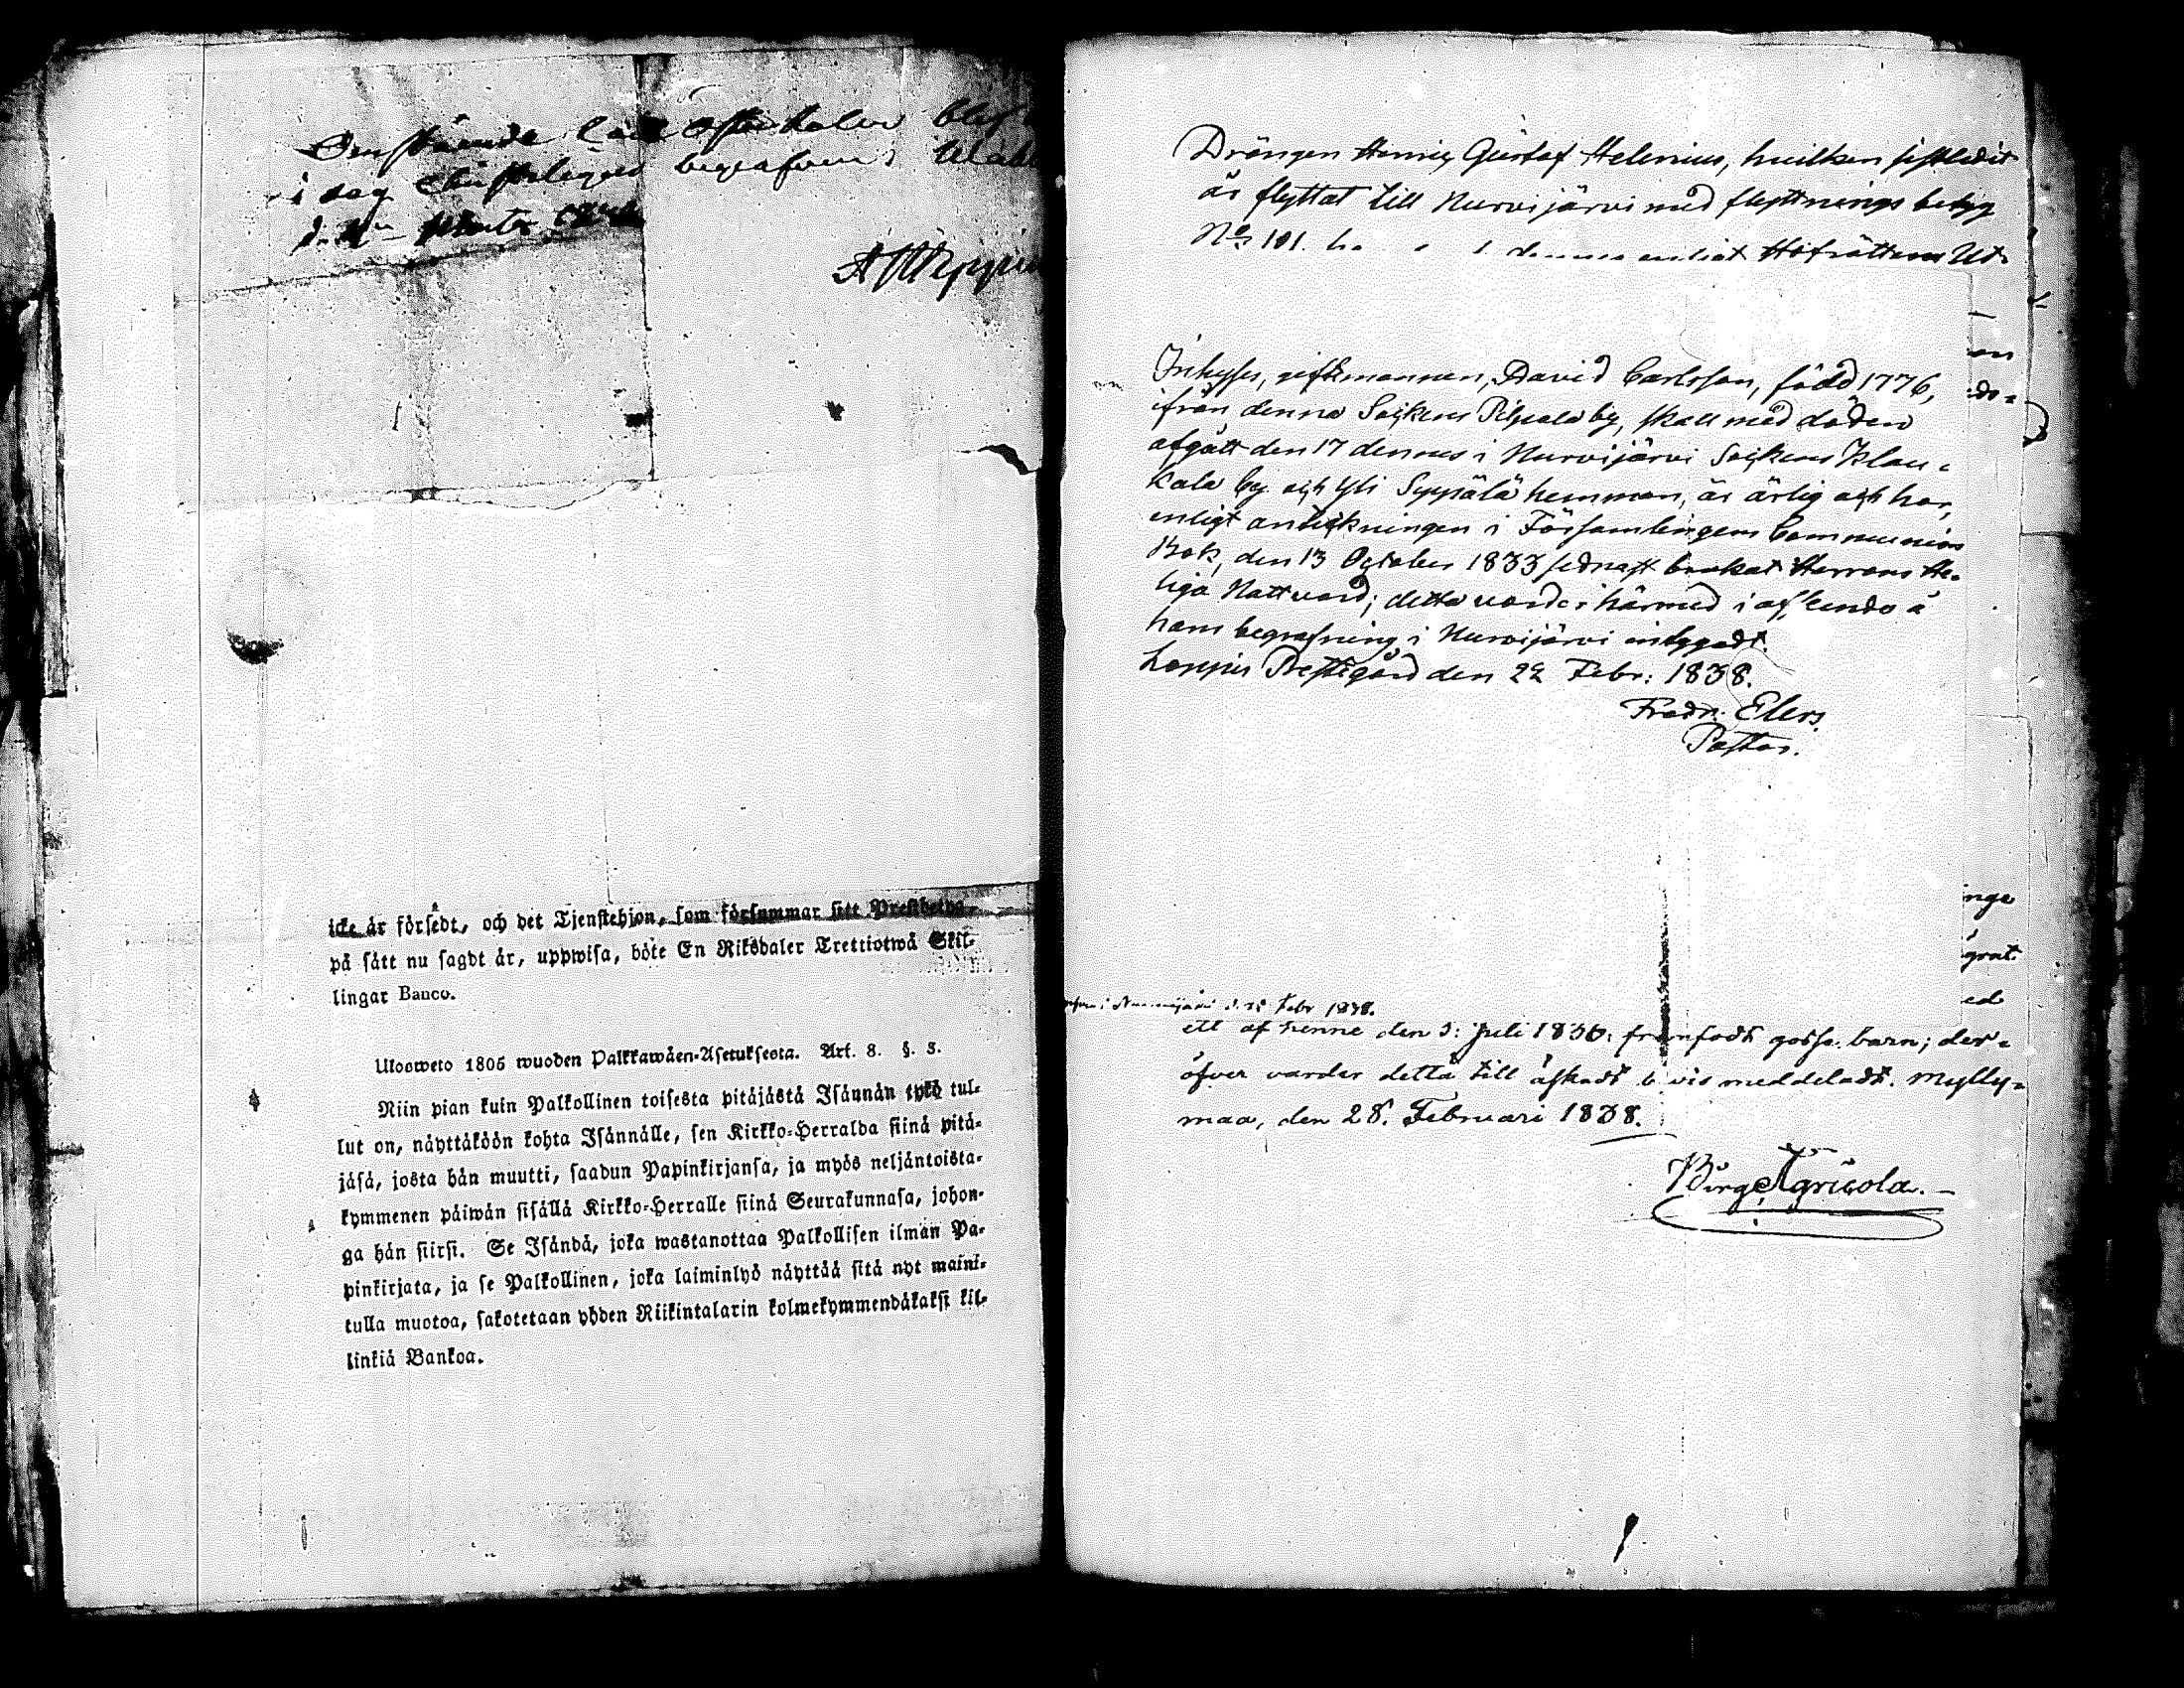 i dag christeligen begrafven i
icke är försedt, och det Tjenstehjon, som försummar sitt Prestbetyg,
på sätt nu sagdt är, uppwisa, böte En Riksdaler Trettiotwå Skil-
lingar Banco.
Ulosweto 1805 wuoden Palkkawäen-Asetuksesta. Art. 8. §. 3.
Niin pian kuin Palkollinen toisesta pitäjästä Isännän tykö tul-
lut on, näyttäköön kohta Isännälle, sen Kirkko-Herralda siinä pitä-
jäsä, josta hän muutti, saadun Papinkirjansa, ja myös neljäntoista-
kymmenen päiwän sisällä Kirkko-Herralle siinä Seurakunnasa, johon-
ga hän siirsi. Se Isändä, joka wastanottaa Palkollisen ilman Pa-
pinkirjata, ja se Palkollinen, joka laiminlyö näyttää sitä nyt maini-
tulla muotoa, sakotetaan yhden Riikintalarin kolmekymmendäkaksi kil-
linkiä Bankoa.
Drängen Henric Gustaf Helenius, hvilken sistledit
är flyttat till Nurmijärvi med flyttnings betyg
No 101. dennes enligt Hofrättens Ut-
Inhyses, giftmannen, David Carlsson, född 1776,
ifrån denna Sockens Pilpala by, skall med döden
afgått den 17 dennes i Nurmijärvi Sockens Klau-
kala by och Yli Seppälä hemman, är ärlig och har,
enligt anteckningen i Församlingens Communion
Bok, den 13 October 1833 sednast brukat Herrans He-
liga Nattvard; detta varder härmed i afseende å
hans begrafning i Nurmijärvi intygadt.
Loppis Prestegård den 22 Febr: 1838.
Fredr. Elers
Pastor.
Nurmijärvi d. 25 Febr 1838.
ett af henne den 3: Juli 1836: framfödt gosse barn; der-
öfver varder detta till äskadt bevis meddeladt. Mylly-
maa, den 28. Februari 1838.
Birg. Agricola.